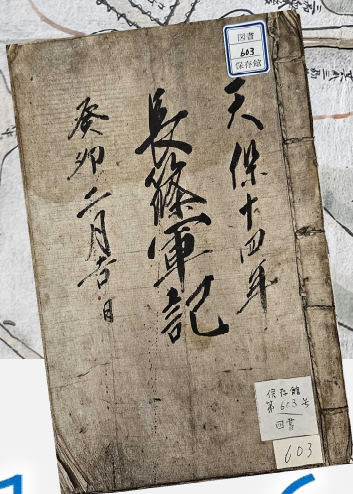 図書
603
保存館
天保十四年
長篠軍記
癸卯二月吉日
保存館
第603号
図書
603